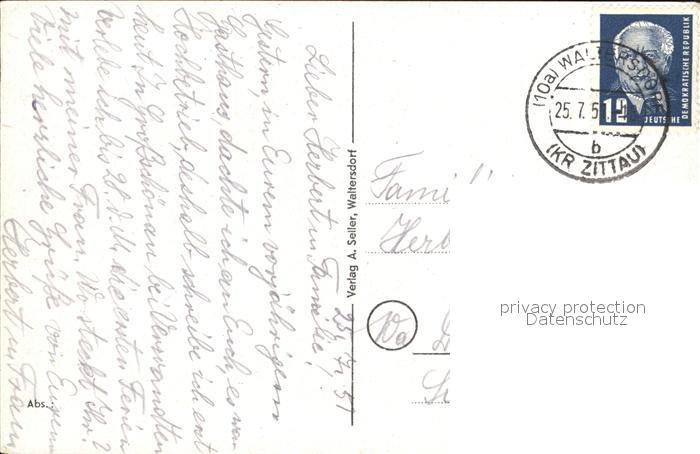 25. 7. 51
Lieber Herbert u. Familie!
Gestern in Eurem vorjährigem
Gasthaus dachte ich an Euch, es war
Hochbetrieb, deshalb schreibe ich erst
heut. In Großschönau bei Verwandten
verlebe ich bis 28. d. M. die ersten Ferien
mit meiner Frau. Wo steckt Ihr?
Viele herzliche Grüße von Eurem
Herbert u. Frau
Abs.:
Verlag A. Seiler, Waltersdorf
(10a) WALTERSDORF
25. 7. 5
b
(KR ZITTAU)
12
DEUTSCHE
DEMOKRATISCHE REPUBLIK
Fami
Herb
privacy protection
Datenschutz